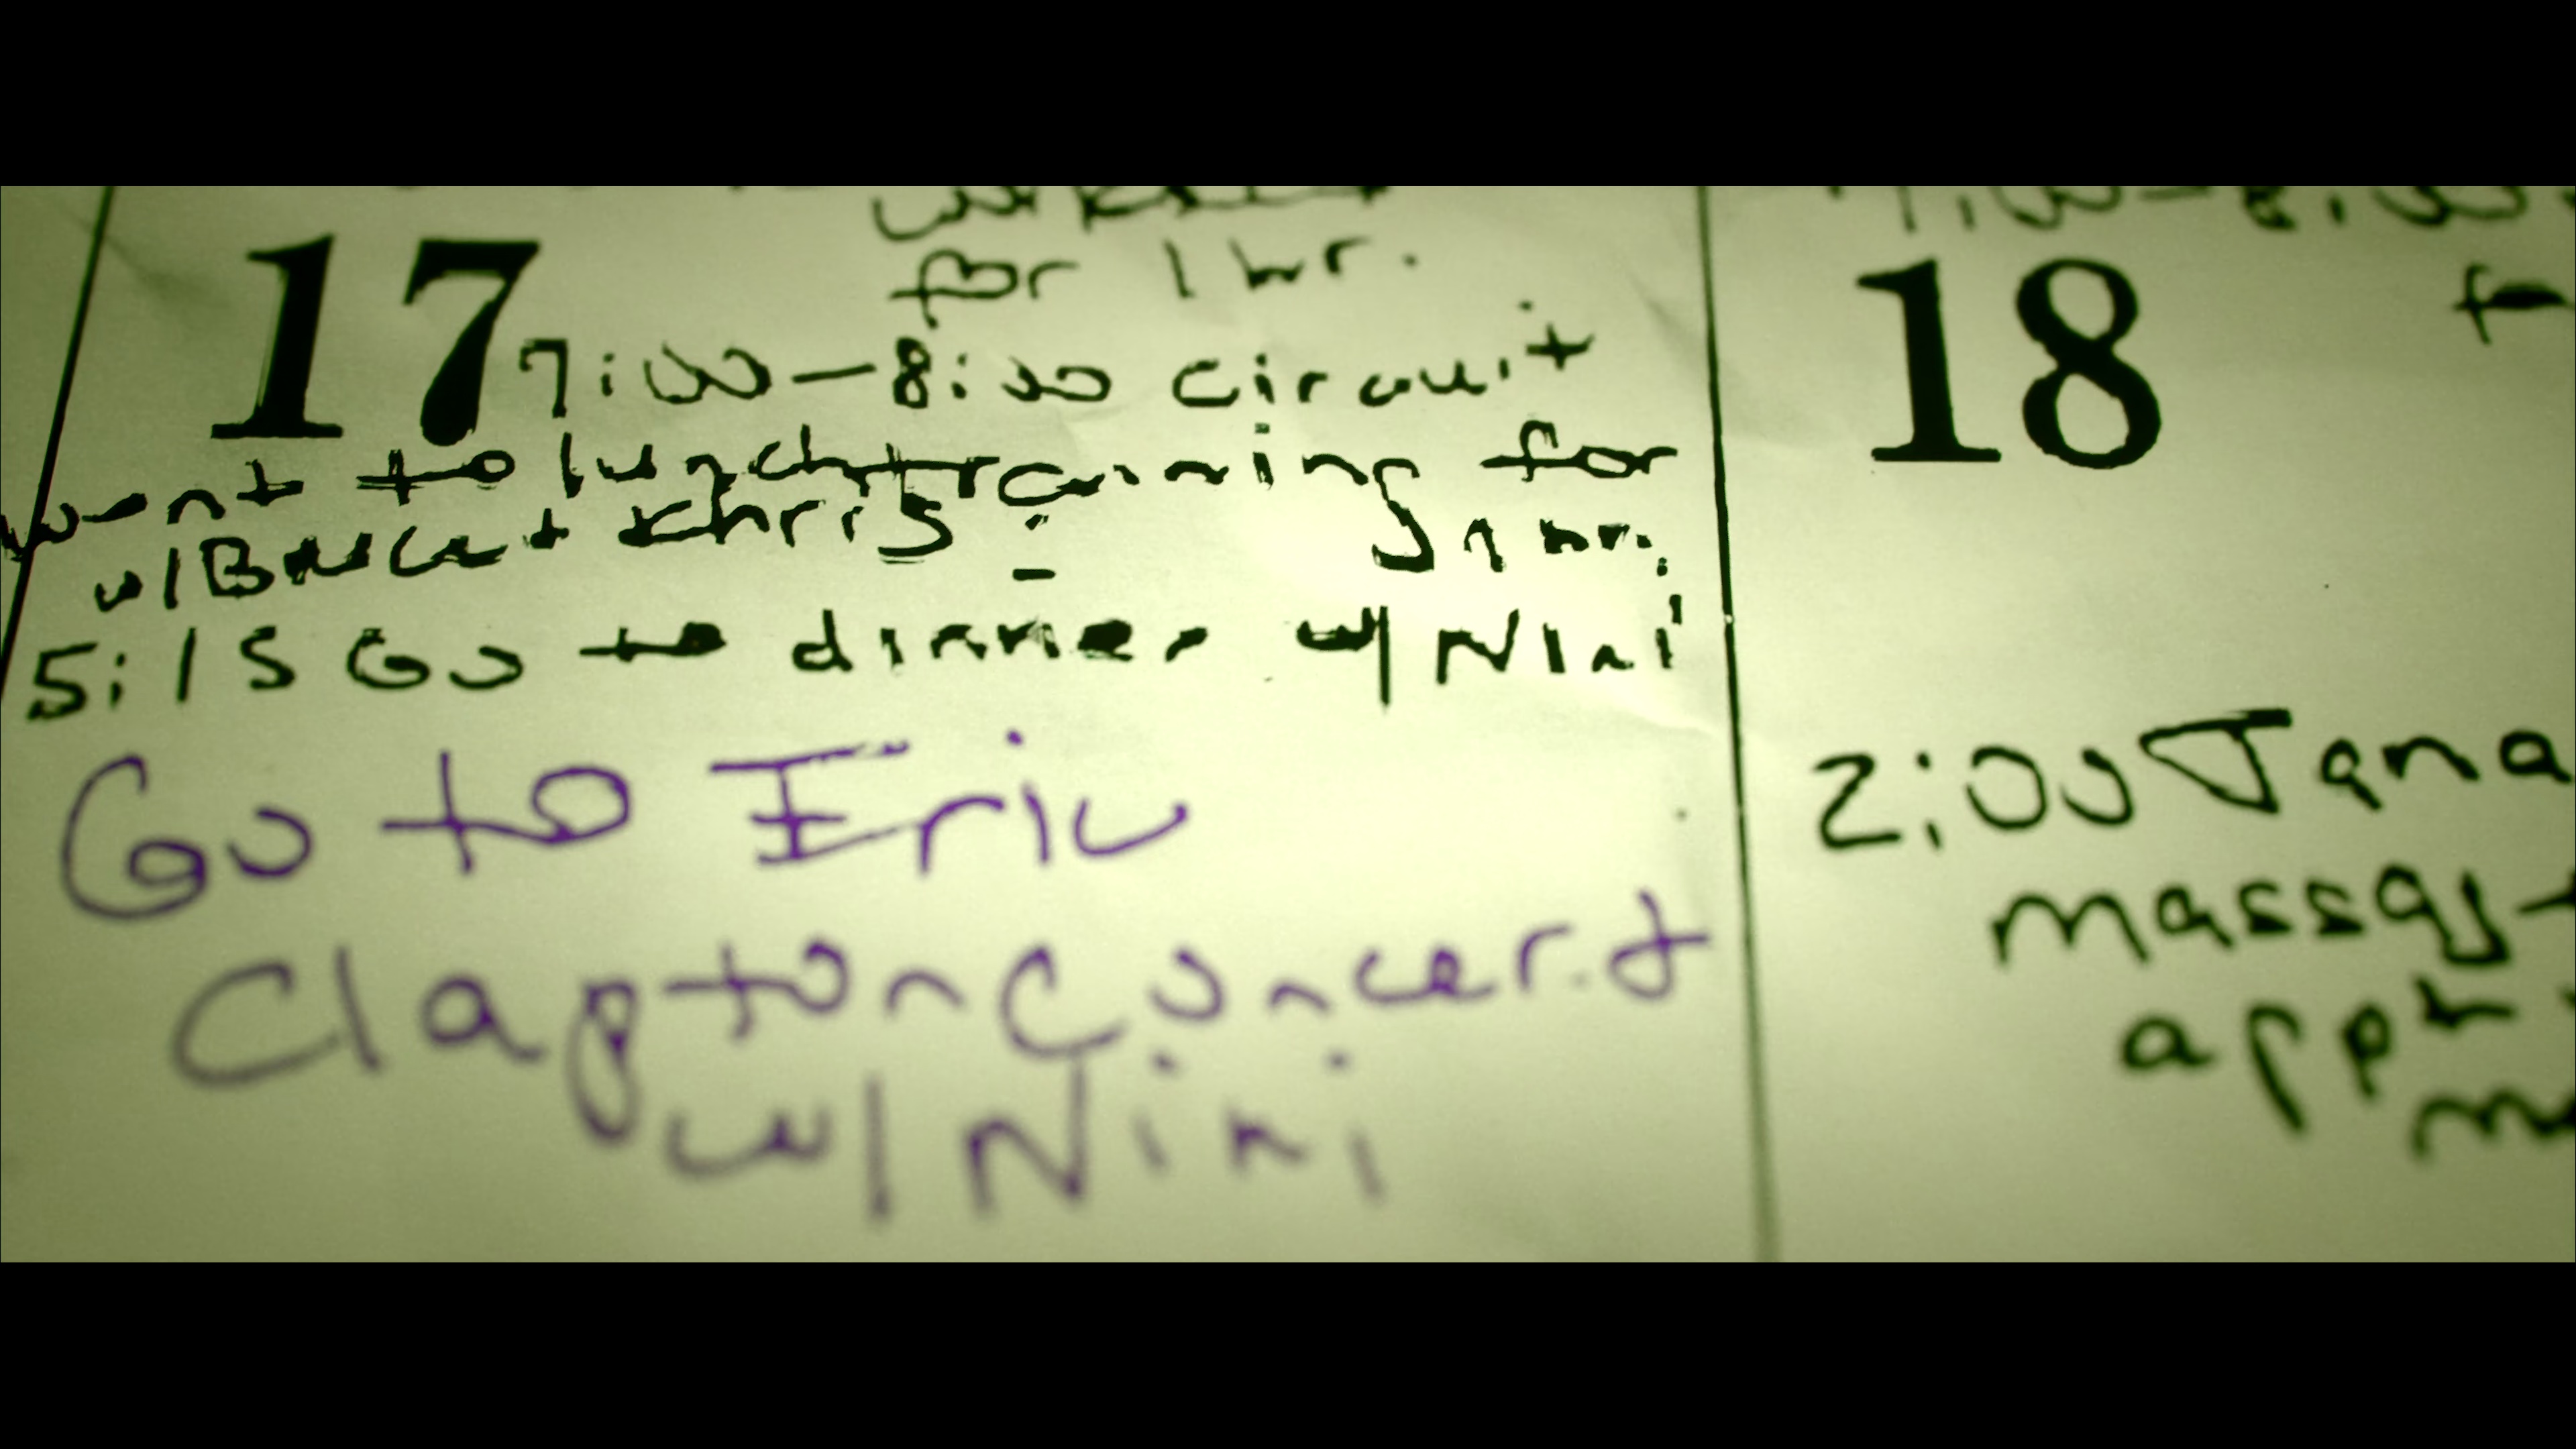 for 1 hr.
17 7:00-8:00 circuit
went to lunch training for
w/ Bruce + Khris 1 hr.
5:15 Go to dinner w/ Nini
Go to Eric
Clapton Concert
w/ Nini
7:00-8:00
18
2:00 Jana
massag
appt